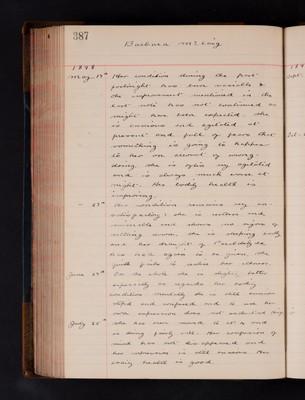 387
Barbara McCaig
1898
May 13th Her condition during the past
fortnight has been variable &
the improvement mentioned in the
last note has not continued as
might have been expected. She
is anxious and agitated at
present and full of fears that
something is going to happen
to her on account of wrong-
doing. She is often very agitated
and is always much worse at
night. Her bodily health is
improving.
Her condition remains very un-
satisfactory: she is restless and
miserable and shows no signs of
settling down. She is sleeping badly
and has
has had again to be given. She
June On the whole she is slightly better
especially as regards her bodily
condition. Mentally she is still
and confused and to use her
own expression does not understand things
July 25th She has been moved to and
is doing fairly well. Her confusion of
mind has not disappeared and
her is still
bodily health is good.